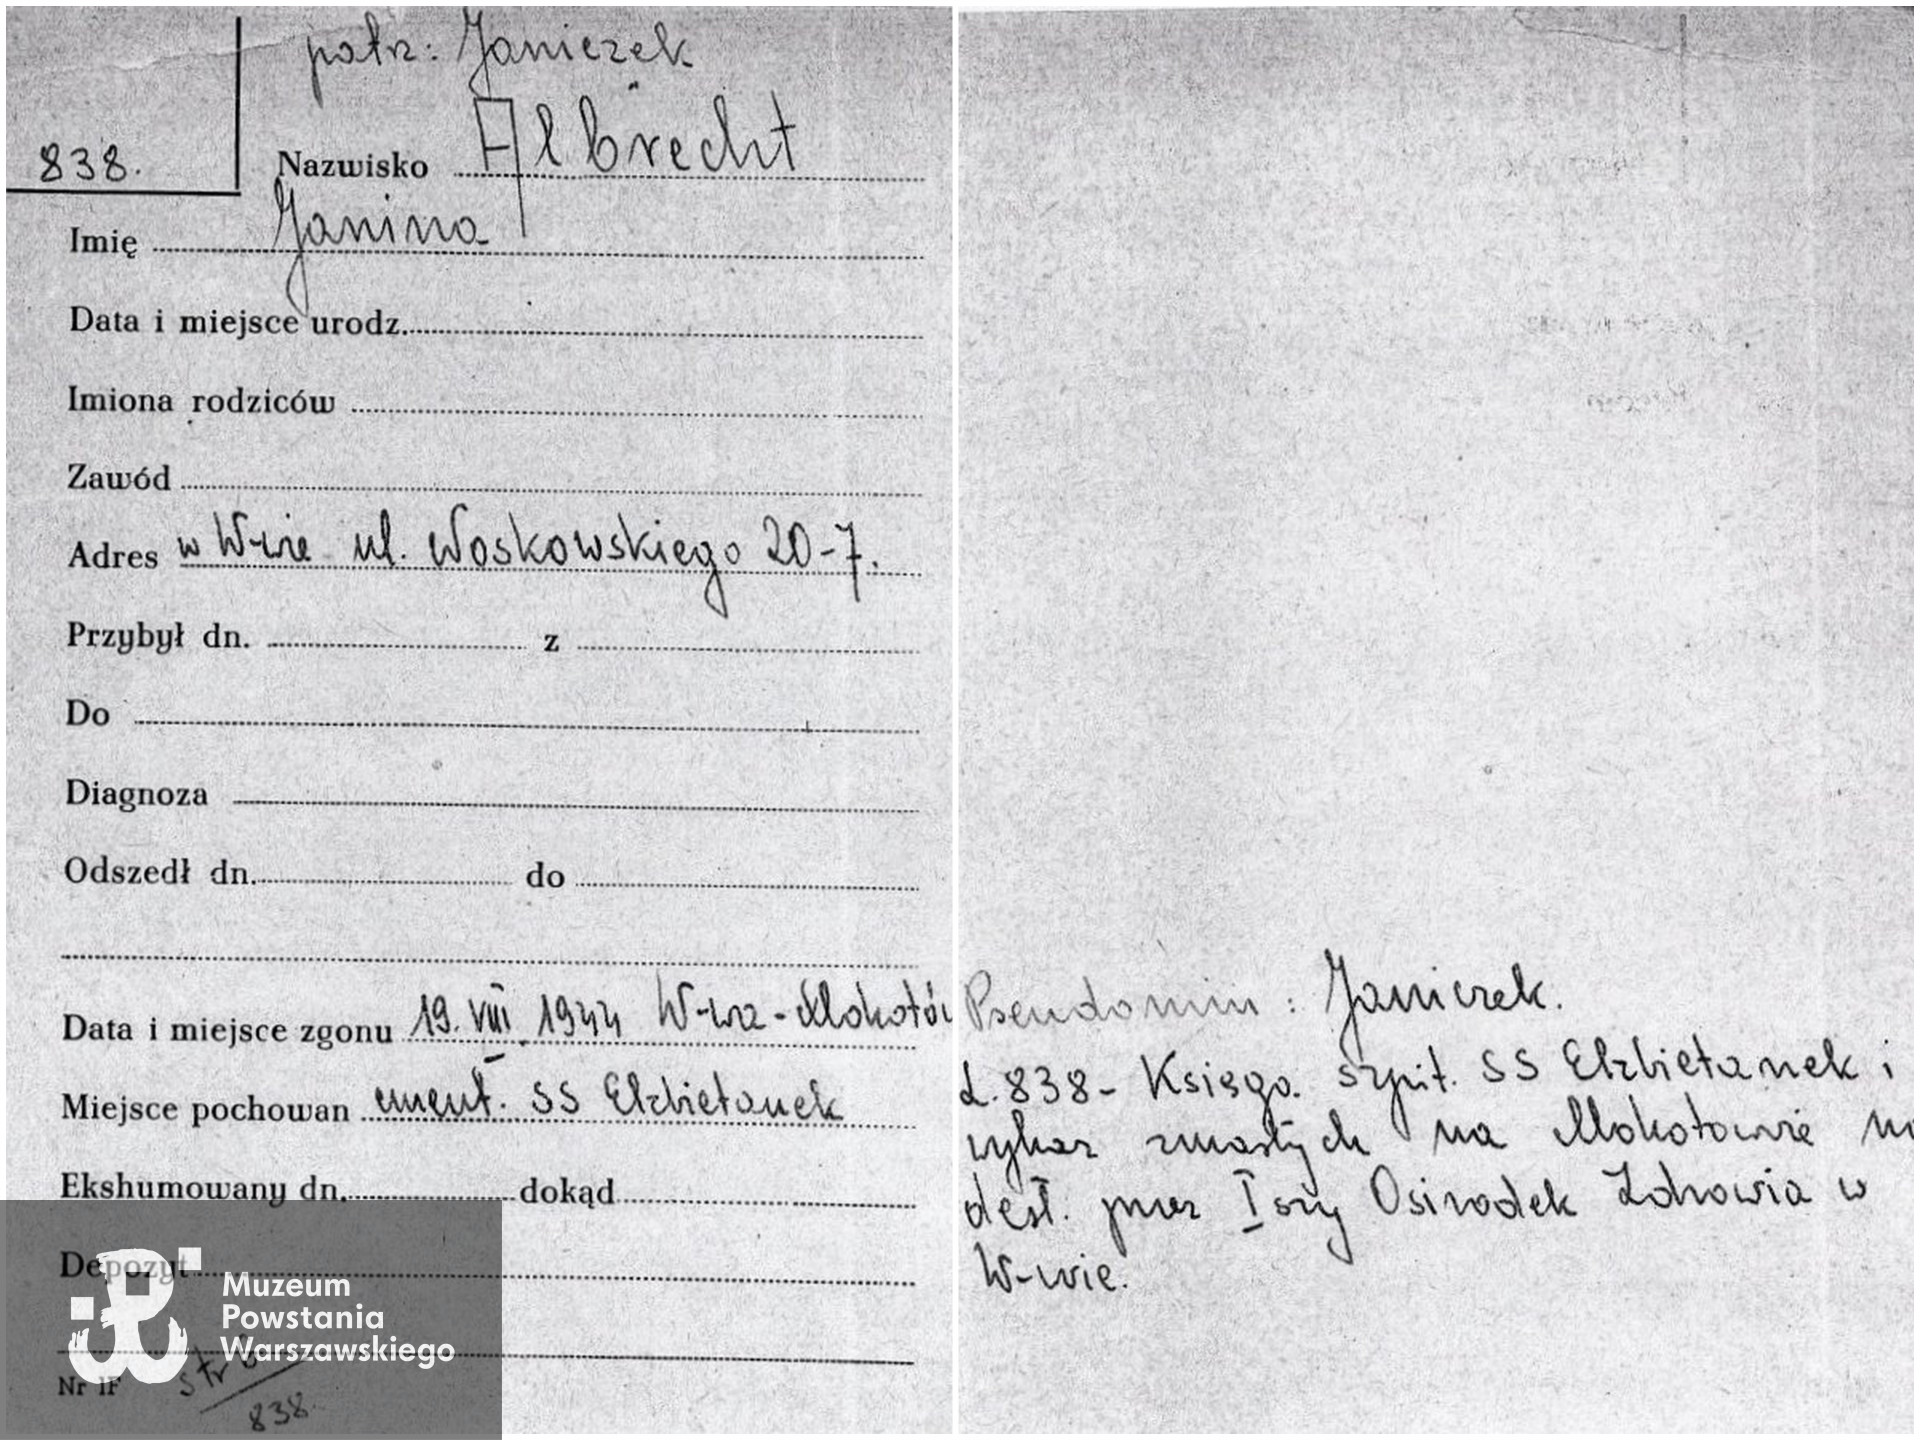 patrz: Janiczek
838.
Nazwisko Albrecht
Imię Janina
Data i miejsce urodz.
Imiona rodziców
Zawód
Adres w W-wie ul. Woskowskiego 20-7.
Przybył dn. z
Do
Diagnoza
Odszedł dn. do
Data i miejsce zgonu 19. VIII 1944 W-wa - Mokotów
Miejsce pochowan cment. SS Elżbietanek
Ekshumowany dn. dokąd
Depozyt
Nr 1F
str 6
838
Muzeum
Powstania
Warszawskiego
Pseudonim: Janiczek.
L. 838 - Księga szpit. SS Elżbietanek i
wykaz zmarłych na Mokotowie na
desł. przez I szy Ośrodek Zdrowia w
W-wie.